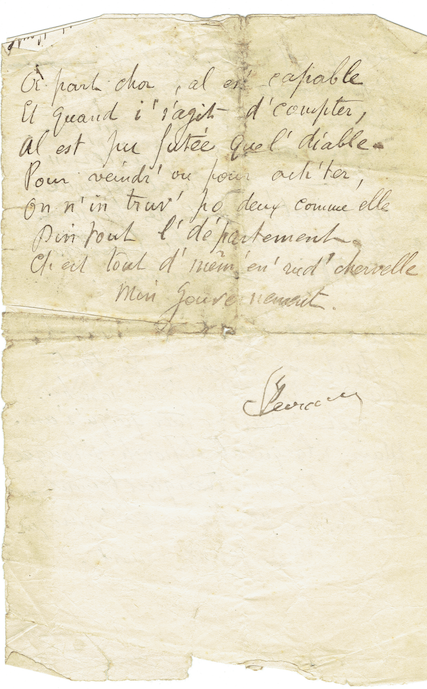 A part cha, al est capable
Et quand i' s'agit d'compter,
Al est pu futée quel' diable.
Pour veindr' ou pour ach'ter,
On n'in truv' po deux comme elle
Din tout l'département.
Ch'est tout d'mêm' en' rud' chervelle
Min Gouvernement.